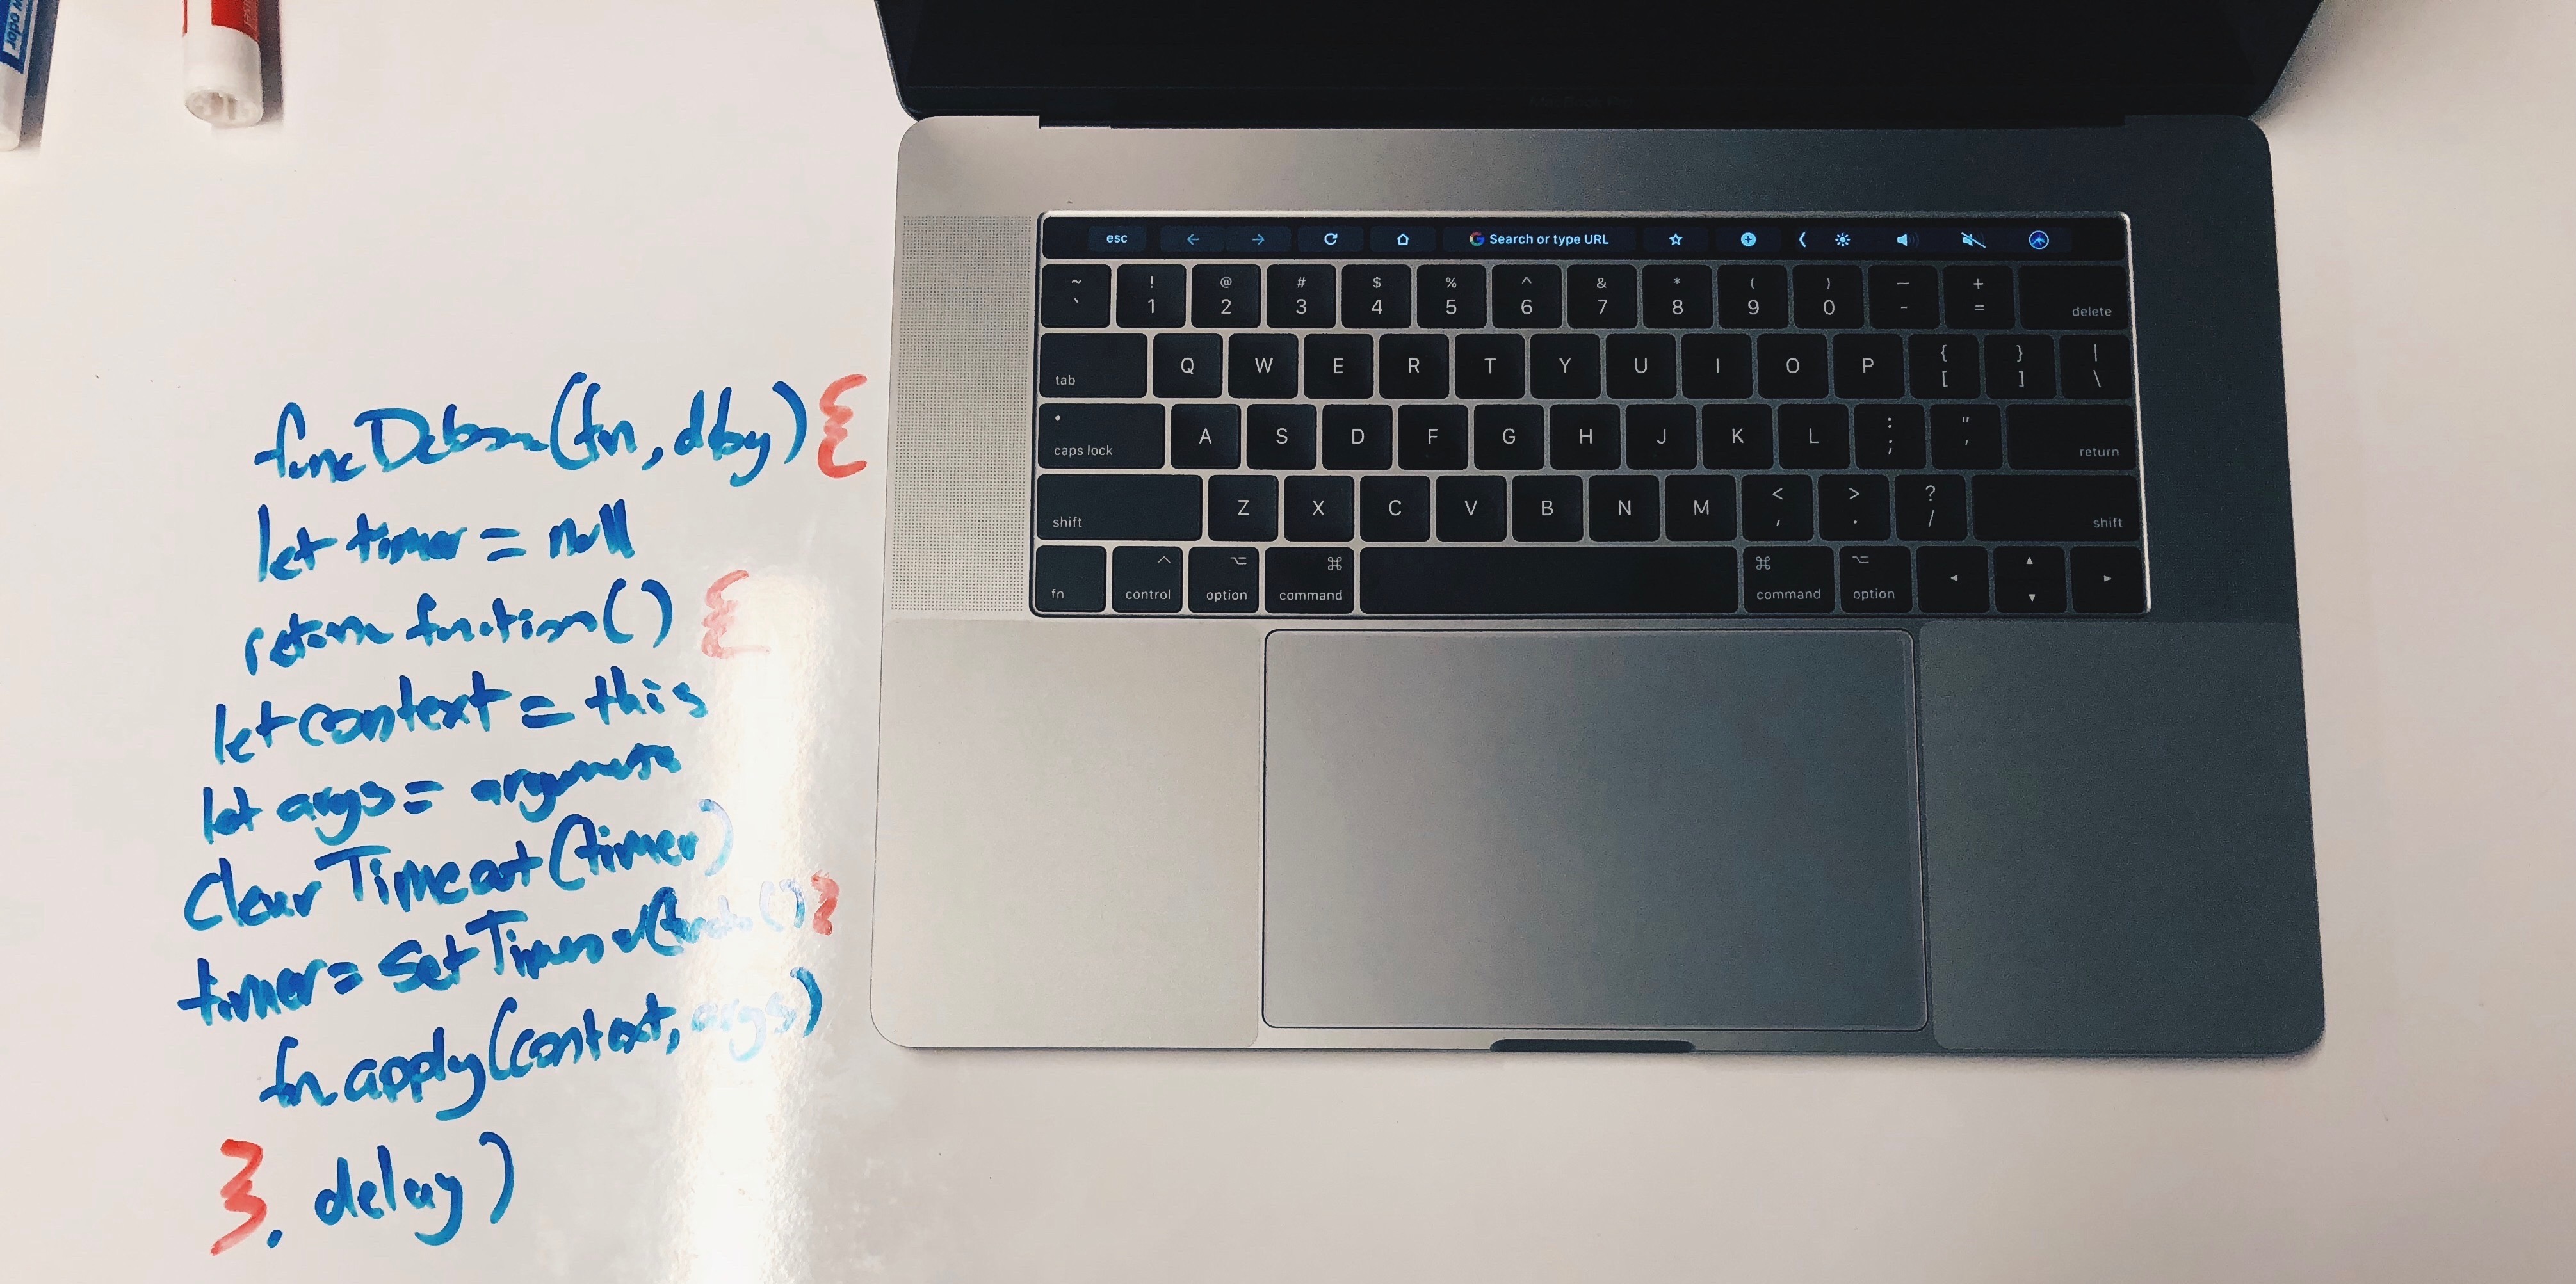 func Deboun(fn, dlay) {
let timer = null
return function() {
let context = this
let args = arguments
clearTimeout(timer)
timer = setTimeout( () }
fn.apply(context, args)
}, delay)
esc Search or type URL
~ ` ! 1 @ 2 # 3 $ 4 % 5 ^ 6 & 7 * 8 ( 9 ) 0 — - + = delete
tab Q W E R T Y U I O P { [ } ] | \
caps lock A S D F G H J K L : ; " ' return
shift Z X C V B N M < , > . ? / shift
fn control option command command option